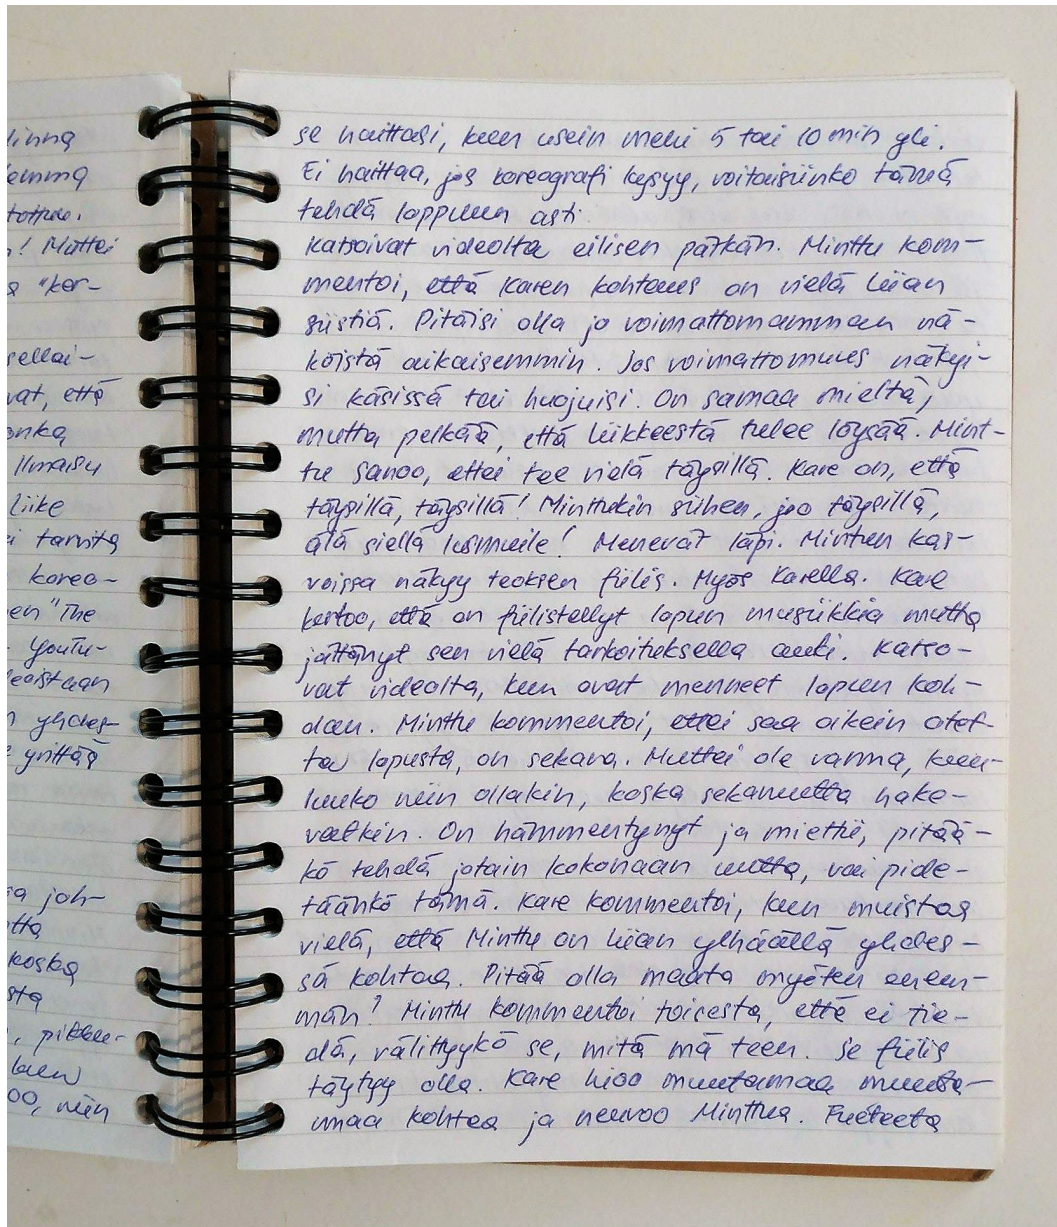 linna
emma
tottu.
n! Muttei
a "ker-
sellai-
vat, että
onka
Ilmaisu
liike
i tarvita
koreo-
en "The
Youtu-
leistaan
n yhdes-
yrittää
sa joh-
otta
koska
sta
, pikku-
kuen
oo, niin
se haittasi, kun usein meni 5 tai 10 min yli.
Ei haittaa, jos koreografi kysyy, voitaisiinko tämä
tehdä loppuun asti.
Katsoivat videolta eilisen pätkän. Minttu kom-
mentoi, että Karen kohtaus on vielä liian
siistiä. Pitäisi olla jo voimattomamman nä-
köistä aikaisemmin. Jos voimattomuus näkyi-
si käsissä tai huojuisi. On samaa mieltä,
mutta pelkää, että liikkeestä tulee löysää. Mint-
tu sanoo, ettei tee vielä täysillä. Kare on, että
täysillä, täysillä! Minttukin siihen, joo täysillä,
älä siellä lusmuile! Menevät läpi. Mintun kas-
voissa näkyy teoksen fiilis. Myös Karella. Kare
kertoo, että on fiilistellyt lopun musiikkia mutta
jättänyt sen vielä tarkoituksella auki. Katso-
vat videolta, kun ovat menneet lopun koh-
dan. Minttu kommentoi, ettei saa oikein otet-
ta lopusta, on sekava. Muttei ole varma, kuu-
luuko niin ollakin, koska sekavuutta hake-
vatkin. On hämmentynyt ja miettii, pitää-
kö tehdä jotain kokonaan uutta, vai pide-
täänkö tämä. Kare kommentoi, kun muistaa
vielä, että Minttu on liian ylhäällä yhdes-
sä kohtaa. Pitää olla maata myöten enem-
män? Minttu kommentoi toisesta, että ei tie-
dä, välittyykö se, mitä mä teen. Se fiilis
täytyy olla. Kare hioo muutamaa muuta-
maa kohtaa ja neuvoo Minttua. Fuéteeta